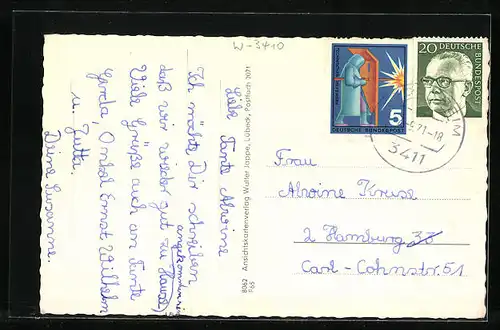 W-3410
Liebe Tante Alwine
Ich möchte Dir schreiben
daß wir wieder gut zu Hause
angekommen
Viele Grüße auch an Tante
Gerda, Onkel Ernst Wilhelm
u. Jutta.
Deine Susanne.
8062 Ansichtskartenverlag Walter Joppe, Lübeck, Postfach 2071
F65
5
DEUTSCHE BUNDESPOST
20 DEUTSCHE
BUNDESPOST
71-18
3411
Frau
Alwine Kruse
2 Hamburg 33
Carl-Cohnstr. 51